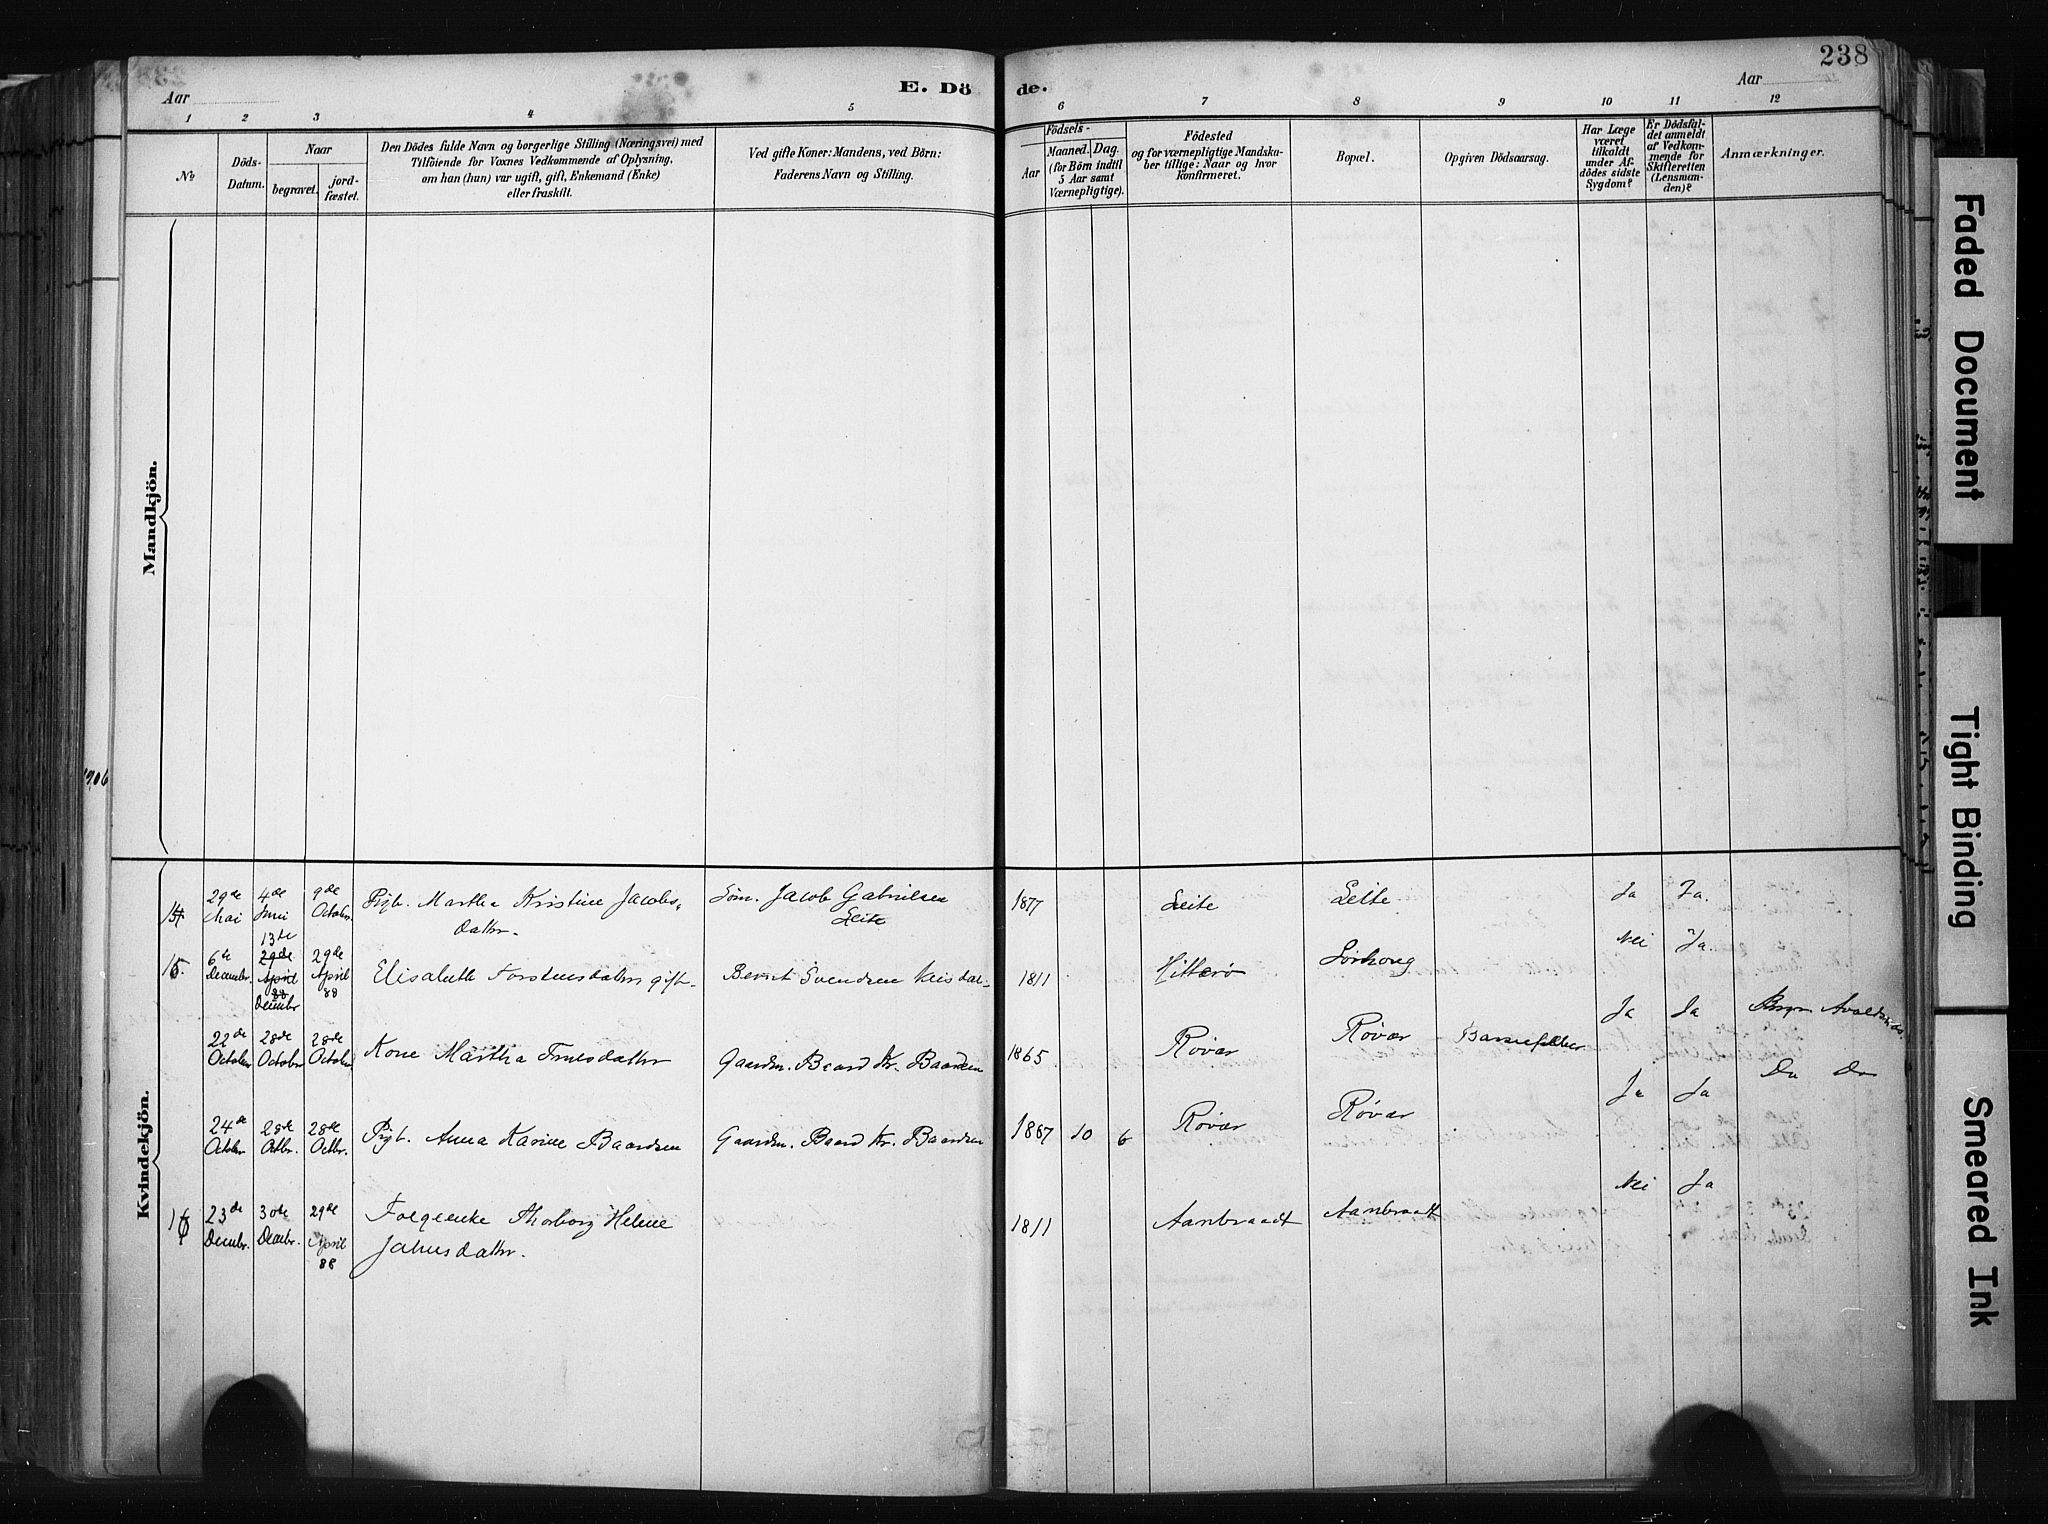 238
Aar
E. Dö
de.
Aar
1 2 3 4 5 6 7 8 9 10 11 12
No
Döds-
Datum.
Naar
begravet.
jord-
fæstet.
Den Dödes fulde Navn og borgerlige Stilling (Næringsvei) med
Tilföiende for Voxnes Vedkommende af Oplysning,
om han (hun) var ugift, gift, Enkemand (Enke)
eller fraskilt.
Ved gifte Koner: Mandens, ved Börn:
Faderens Navn og Stilling.
Födsels-
Aar
Maaned. Dag.
(for Börn indtil
5 Aar samt
Værnepligtige).
Födested
og for værnepligtige Mandska-
ber tillige: Naar og hvor
konfirmeret.
Bopæl.
Opgiven Dödsaarsag.
Har Læge
været
tilkaldt
under Af-
dödes sidste
Sygdom?
Er Dödsfal-
det anmeldt
af Vedkom-
mende for
Skifteretten
(Lensman-
den)?
Anmærkninger.
Mandkjön.
Kvindekjön.
1906
14 29de Mai 4de Juni 9de Octobr. Pigb. Martha Kristine Jacobs-
dattr. Søm. Jacob Gabrielsen
Leite 1877 Leite Leite Ja Ja.
15. 6te Decembr. 13de 29de April 88 Decembr 29de April 88 Elisabeth Torstensdattr gift- Bernt Svendsen 1811 Hitterö Sörhoug Nei Ja.
22de October 28de October 28de October Kone Martha Truesdattr Gaardm. Baard Kr. Baardsen 1865 Røvær Røvær Barselfeber Ja Ja Avaldsnæs.
24de October 28de Octbr. 28de Octbr. Pigb. Anna Karine Baardsen Gaardm. Baard Kr. Baardsen 1887 10 6 Røvær Røvær Ja Ja Do Do
16 23de Decembr. 30de Decmbr. 29de April 88 Folgeenke Thorborg Helene
Jahnsdattr. 1811 Aanbraadt Aanbraadt Nei Ja
Faded Document
Tight Binding
Smeared Ink